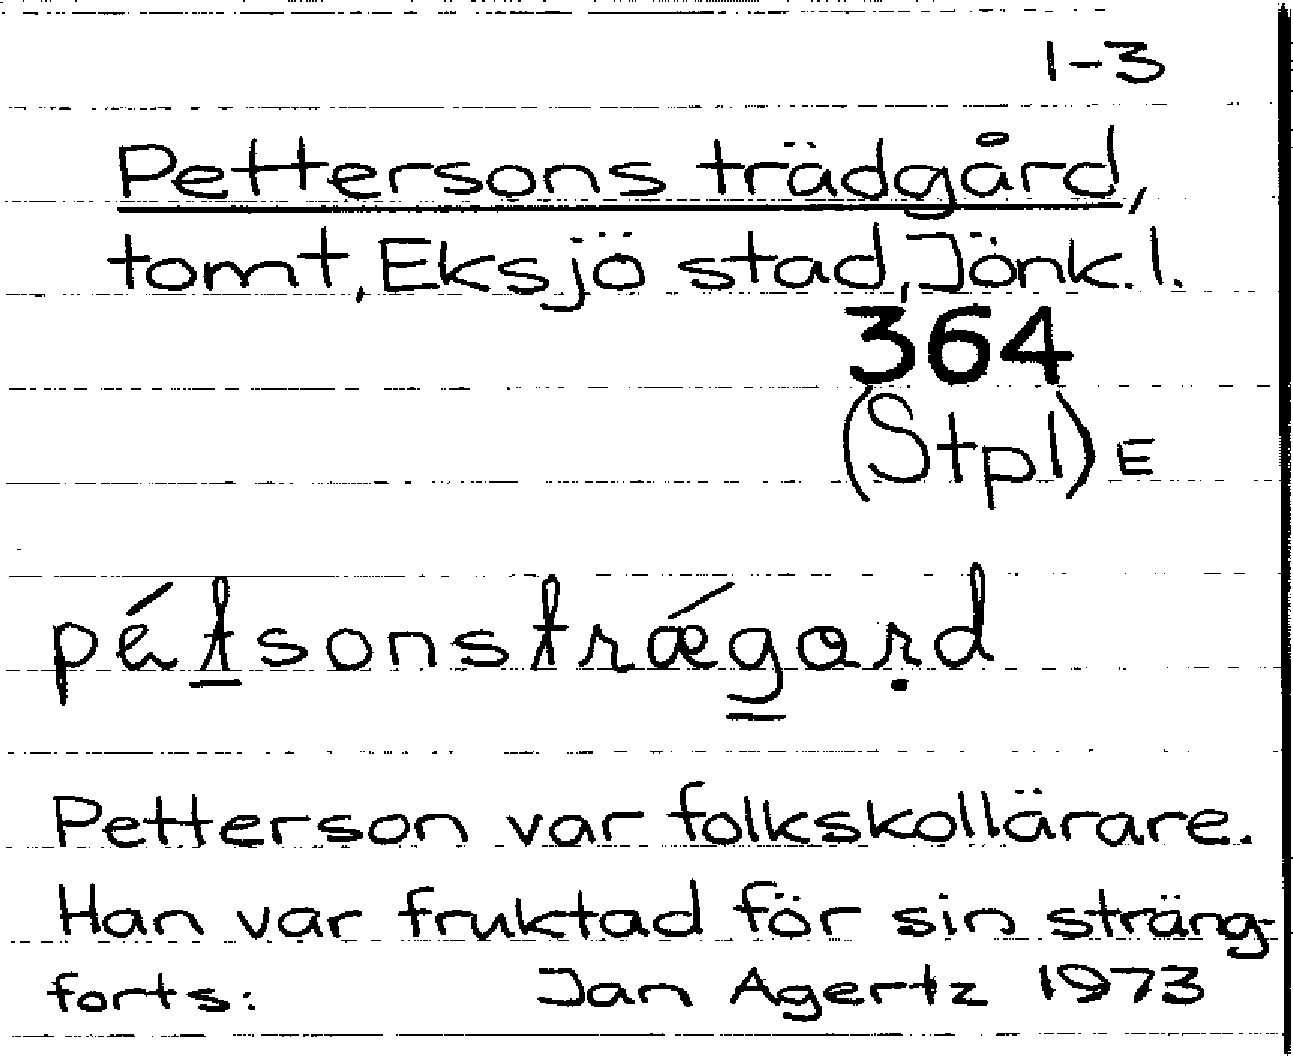 1-3
Pettersons trädgård,
tomt, Eksjö stad, Jönk. l.
364
(Stpl) E
pétsonstrǽgaṛd
Petterson var folkskollärare.
Han var fruktad för sin sträng-
forts: Jan Agertz 1973